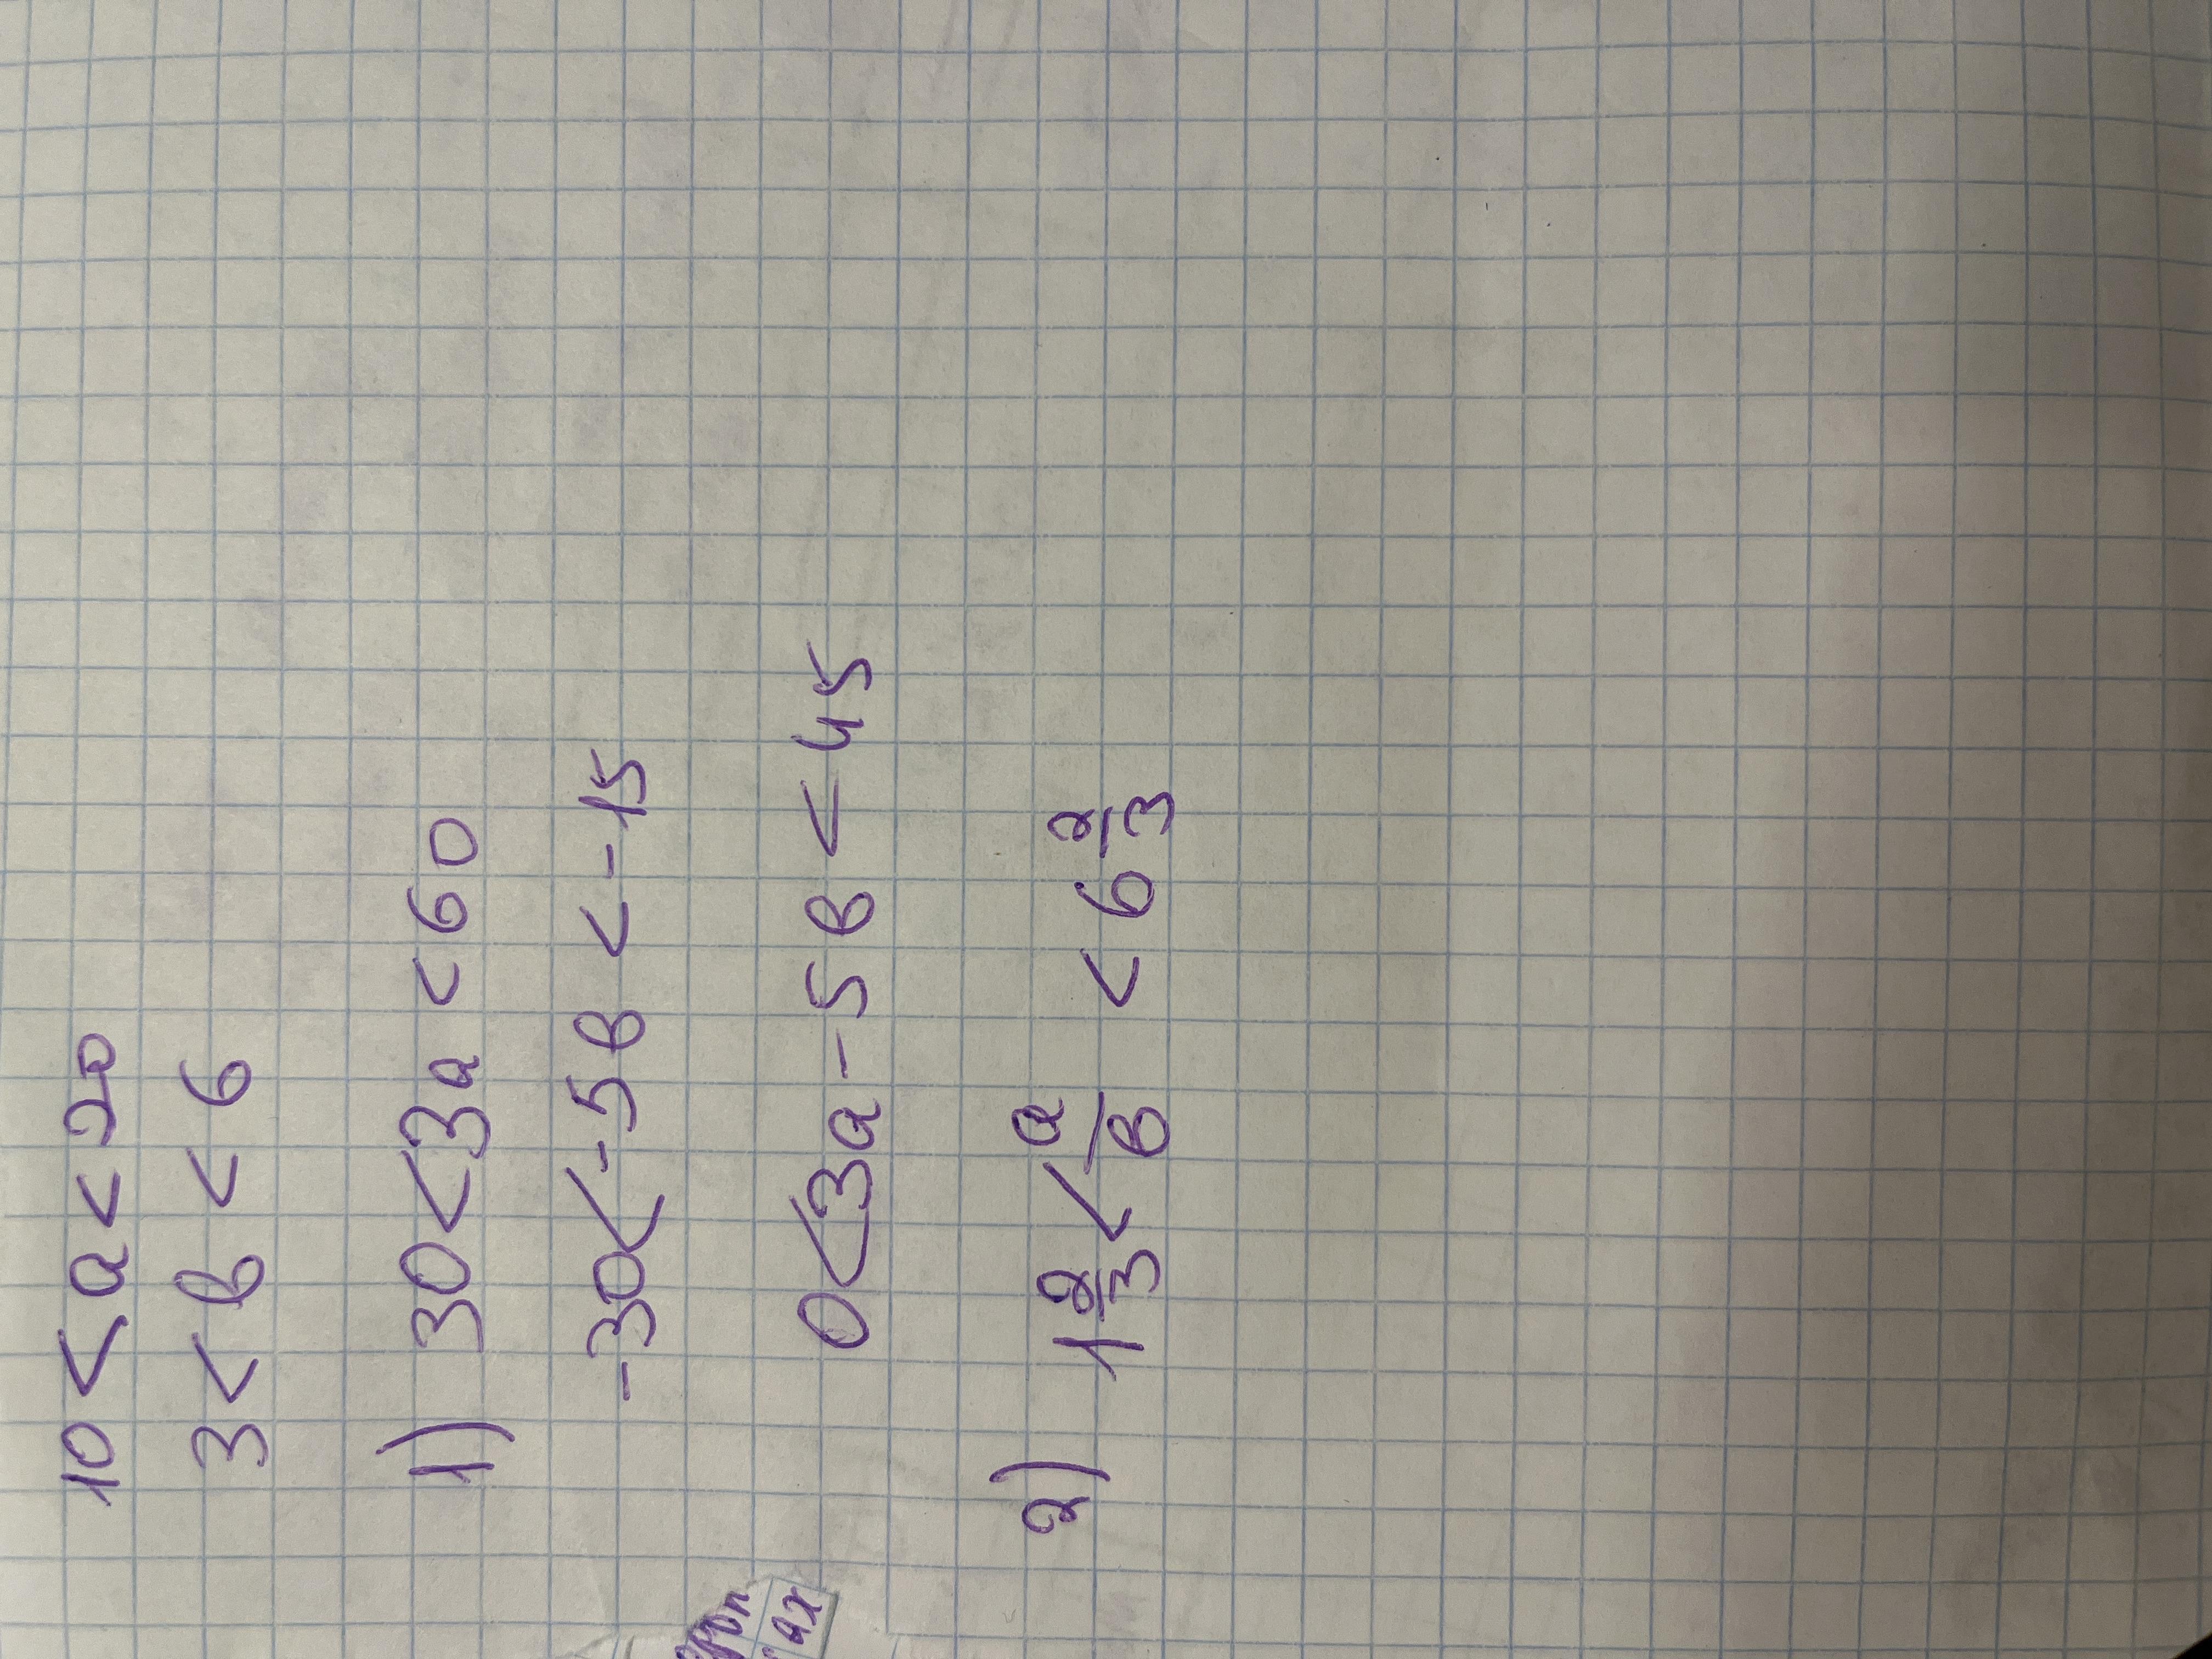 10 < a < 20
3 < b < 6
1) 30 < 3a < 60
-30 < -5b < -15
0 < 3a - 5b < 45
2) 1 2/3 < a/b < 6 2/3
ах